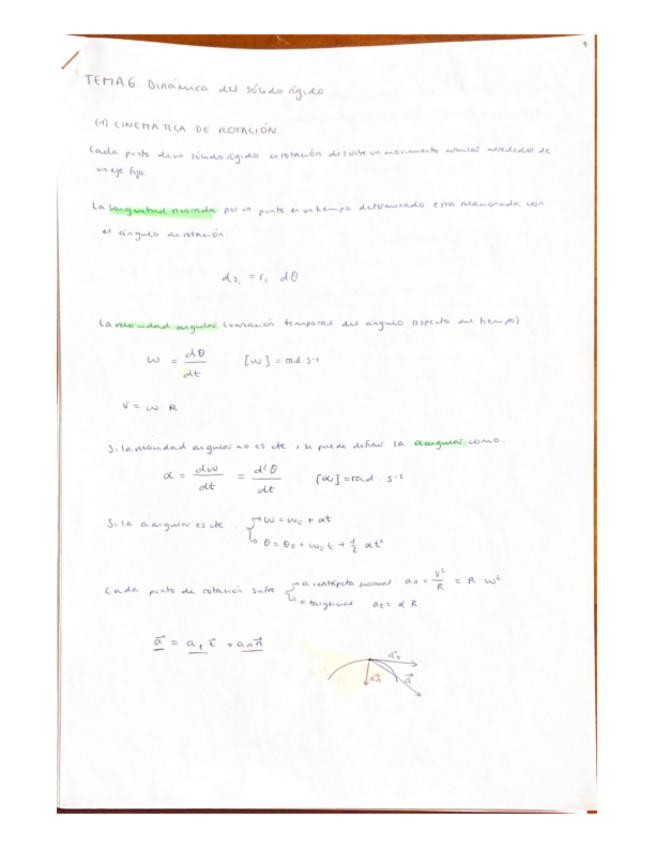 1
TEMA 6. Dinámica del sólido rígido
(1) CINEMÁTICA DE ROTACIÓN
Cada punto de un sólido rígido en rotación describe un movimiento circular alrededor de
un eje fijo.
La longitud recorrida por un punto en un tiempo determinado está relacionada con
el ángulo de rotación.
ds₁ = r₁ dθ
La velocidad angular (variación temporal del ángulo respecto del tiempo)
w = dθ/dt [w] = rad·s⁻¹
V = w R
Si la velocidad angular no es cte, se puede definir la a angular, como
α = dw/dt = d²θ/dt [α] = rad · s⁻²
Si la a angular es cte w = w₀ + αt
θ = θ₀ + w₀ t + 1/2 αt²
Cada punto de rotación sufre a centrípeta normal an = V²/R = R·w²
a tangencial at = α R
a⃗ = at t⃗ + an n⃗
a⃗t
a⃗n a⃗